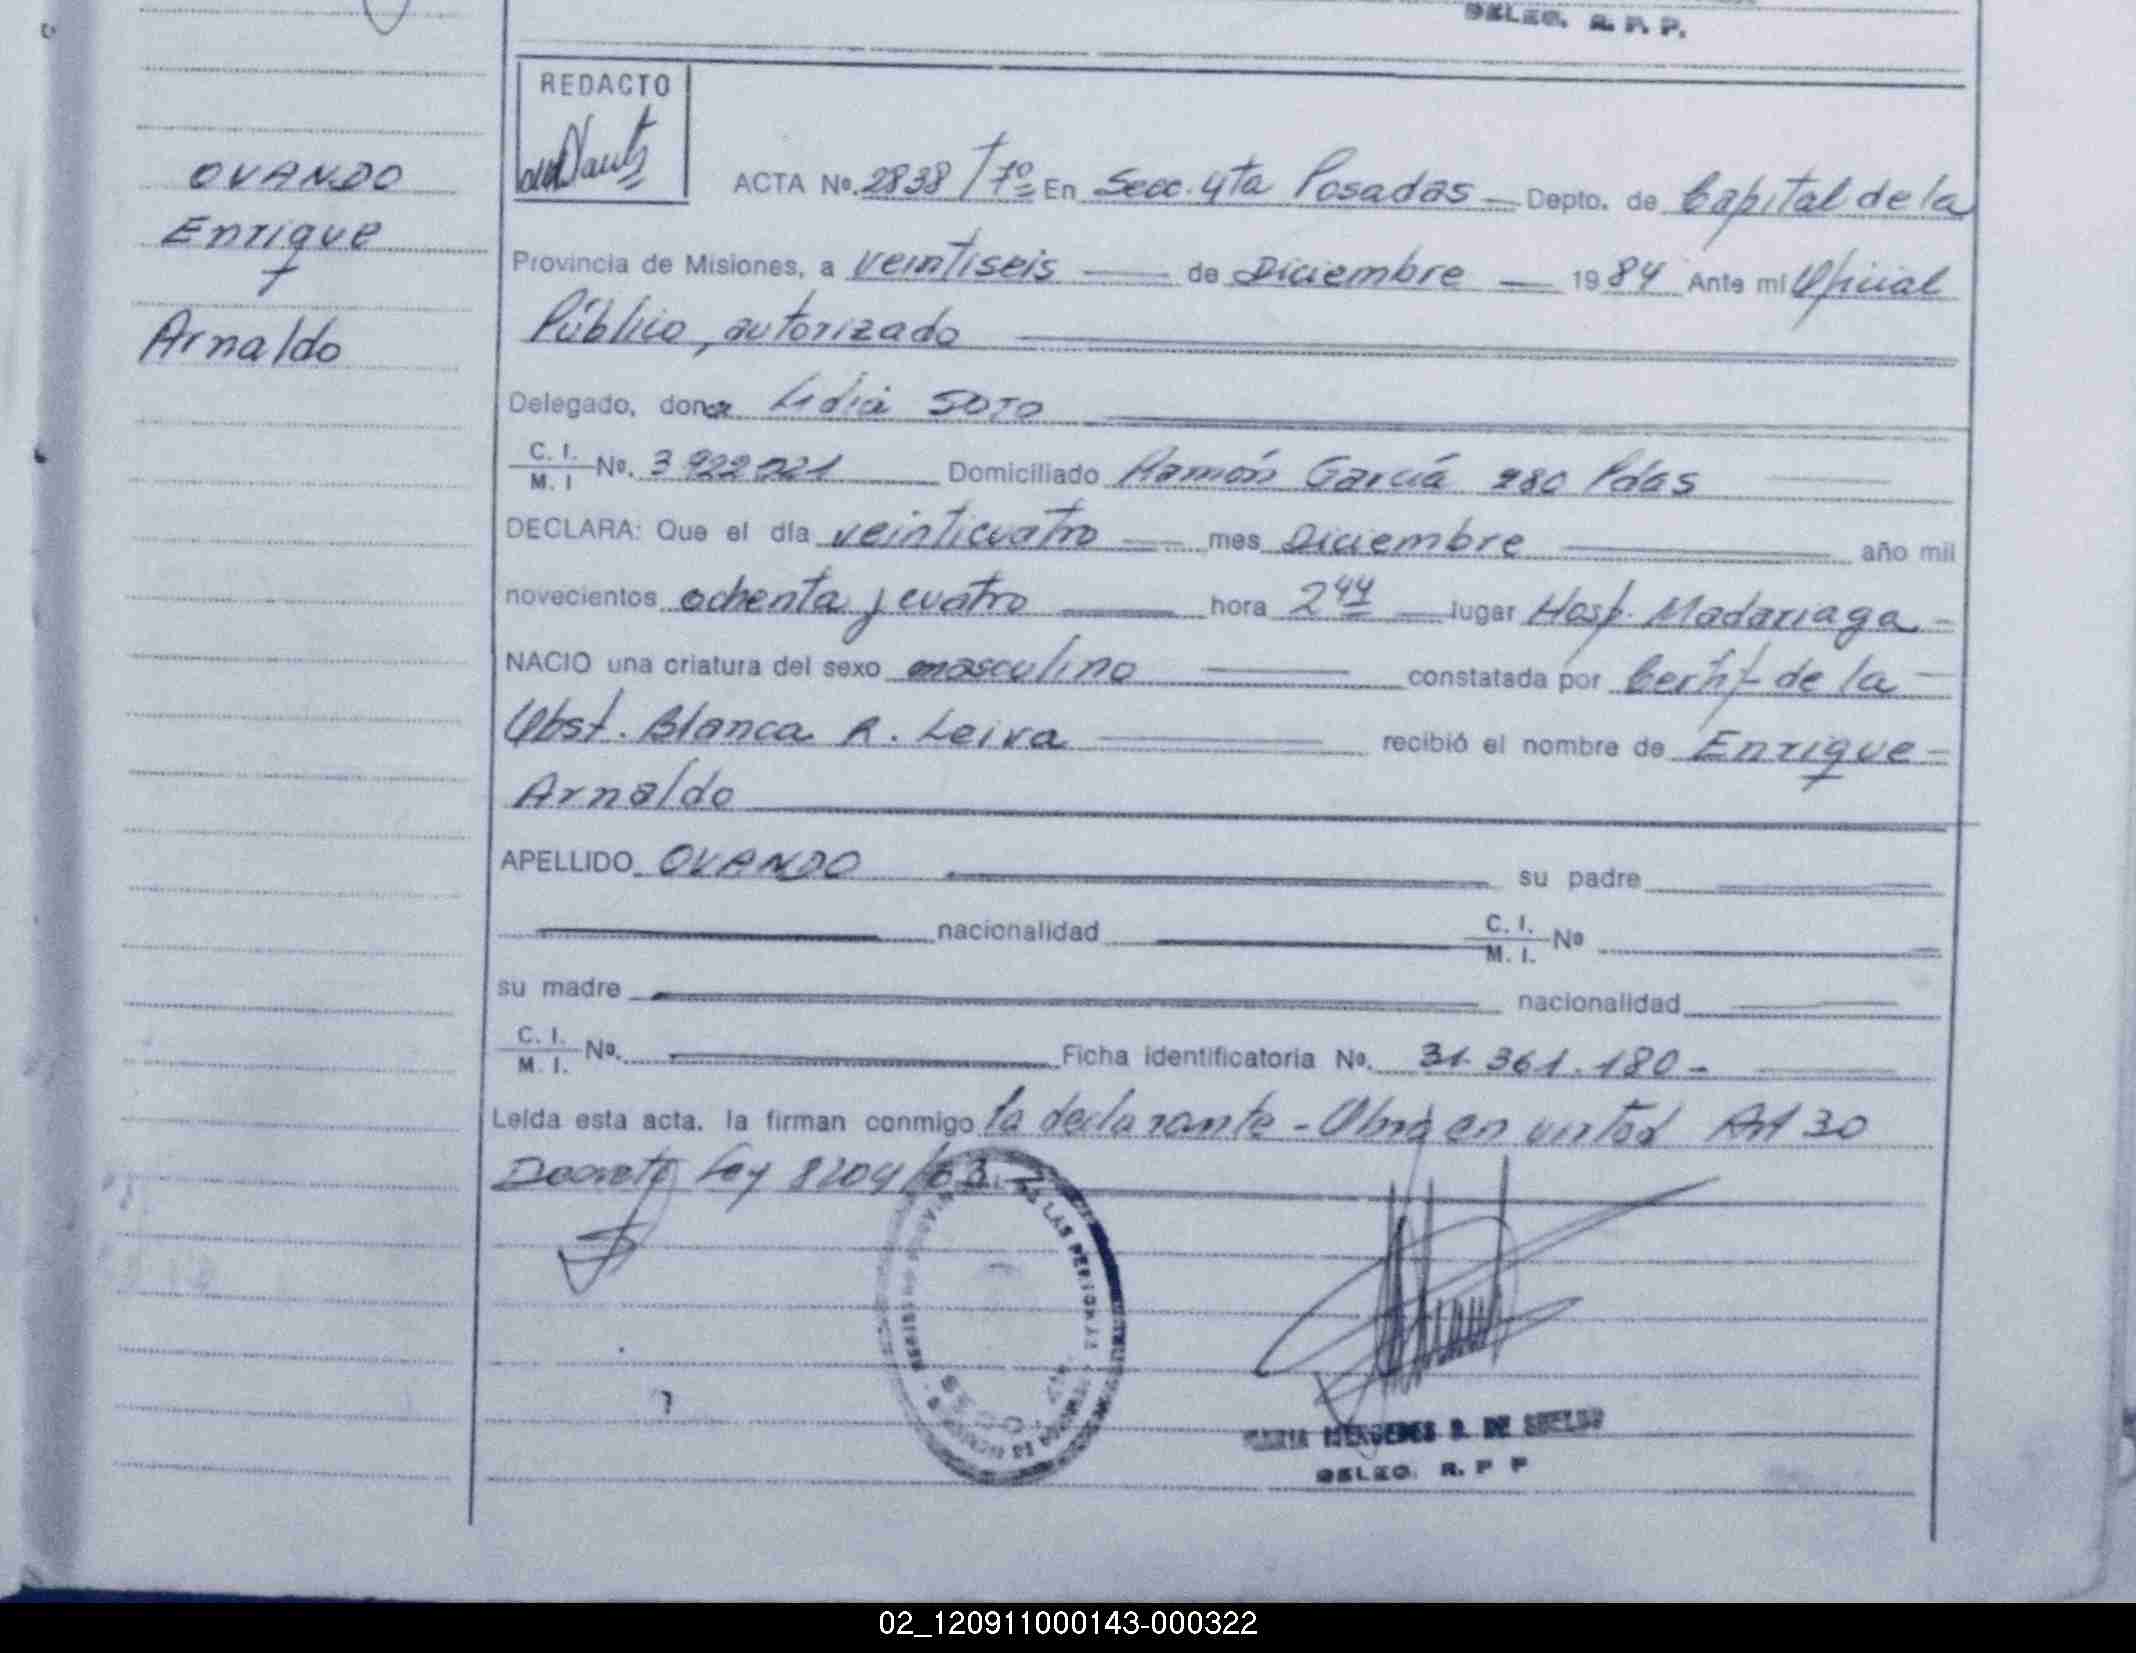 DELEG. R. P. P.
REDACTO
OVANDO
Enrique
Arnaldo
ACTA No. 2838 / 7º En Secc. 4ta Posadas Depto. de Capital de la
Provincia de Misiones, a veintiseis de Diciembre 1984 Ante mi Oficial
Público, autorizado
Delegado, dona Lidia SOTO
C. I.
M. I No. 3922021 Domiciliado Ramón García 280 Pdas
DECLARA: Que el día veinticuatro mes Diciembre año mil
novecientos ochenta y cuatro hora 2 44 lugar Hosp. Madariaga
NACIO una criatura del sexo masculino constatada por Certif de la
Obst. Blanca R. Leiva recibió el nombre de Enrique
Arnaldo
APELLIDO OVANDO su padre
nacionalidad C. I.
M. I. No
su madre nacionalidad
C. I.
M. I. No. Ficha identificatoria No. 31.361.180-
Leída esta acta, la firman conmigo la declarante - Obra en virtud Art 30
Decreto Ley 8204/63.-
MARIA MERCEDES B. DE
DELEG. R. P P
02_120911000143-000322